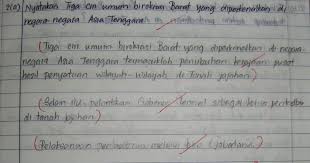 2(a) Nyatakan Tiga ciri umum birokrasi Barat yang diperkenalkan di
negara-negara Asia Tenggara
(Tiga ciri umum birokrasi Barat yang diperkenalkan di negara-
negara Asia Tenggara termasuklah penubuhan kerajaan pusat
hasil penyatuan wilayah-wilayah di Tanah jajahan)
(Selain itu, pelantikan Gabenor Jeneral sebagai ketua pentadbir
di tanah jajahan)
(Pelaksanaan pentadbiran melalui (jabatan))